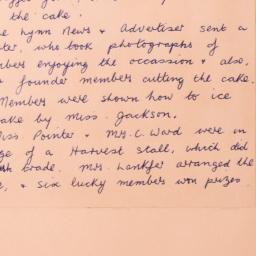 the cake.
Lynn News & Advertiser sent a
who took photographs of
enjoying the occassion & also,
founder members cutting the cake.
Members were shown how to ice
cake by Miss. Jackson.
Miss. Pointer & Mrs. C. Ward were in
of a Harvest stall, which did
trade. Mrs. Lankfer arranged the
& six lucky member won prizes